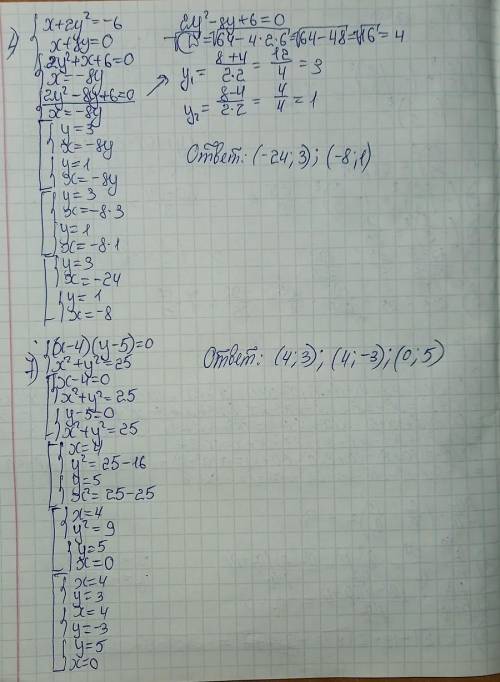 1) x+2y²=-6
x+8y=0
2y²+x+6=0
x=-8y
2y²-8y+6=0
x=-8y
y=3
x=-8y
y=1
x=-8y
y=3
x=-8·3
y=1
x=-8·1
y=3
x=-24
y=1
x=-8
2y²-8y+6=0
√D=√64-4·2·6=√64-48=√16=4
y₁=(8+4)/(2·2)=12/4=3
y₂=(8-4)/(2·2)=4/4=1
Ответ: (-24;3); (-8;1)
7) (x-4)(y-5)=0
x²+y²=25
x-4=0
x²+y²=25
y-5=0
x²+y²=25
x=4
y²=25-16
y=5
x²=25-25
x=4
y²=9
y=5
x=0
x=4
y=3
x=4
y=-3
y=5
x=0
Ответ: (4;3); (4;-3); (0;5)